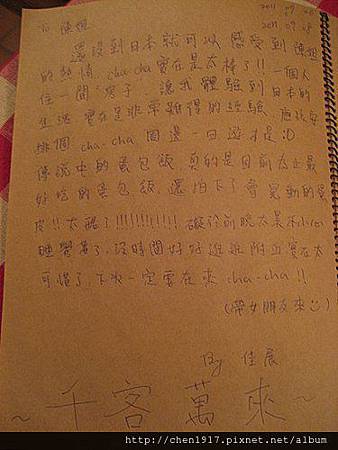 To 陳姐
2011. 07
2011. 07. 08
還沒到日本就可以感受到陳姐
的熱情 cha cha 實在是太棒了!! 一個人
住一間"房子",讓我體驗到日本的
生活實在是非常難得的經驗,應該安
排個 cha-cha 周邊一日遊才是 :D
傳說中的蛋包飯,真的是目前為止最
好吃的蛋包飯,還拍下了會晃動的蛋
皮!!太酷了!!!!!!!!!! 礙於前晚太
睡覺去了,沒時間好好逛逛附近實在太
可惜了,下次一定要在來 cha-cha !!
(帶女朋友來:))
By 佳展
~ 千客萬來 ~
http://chen1917.pixnet.net/album